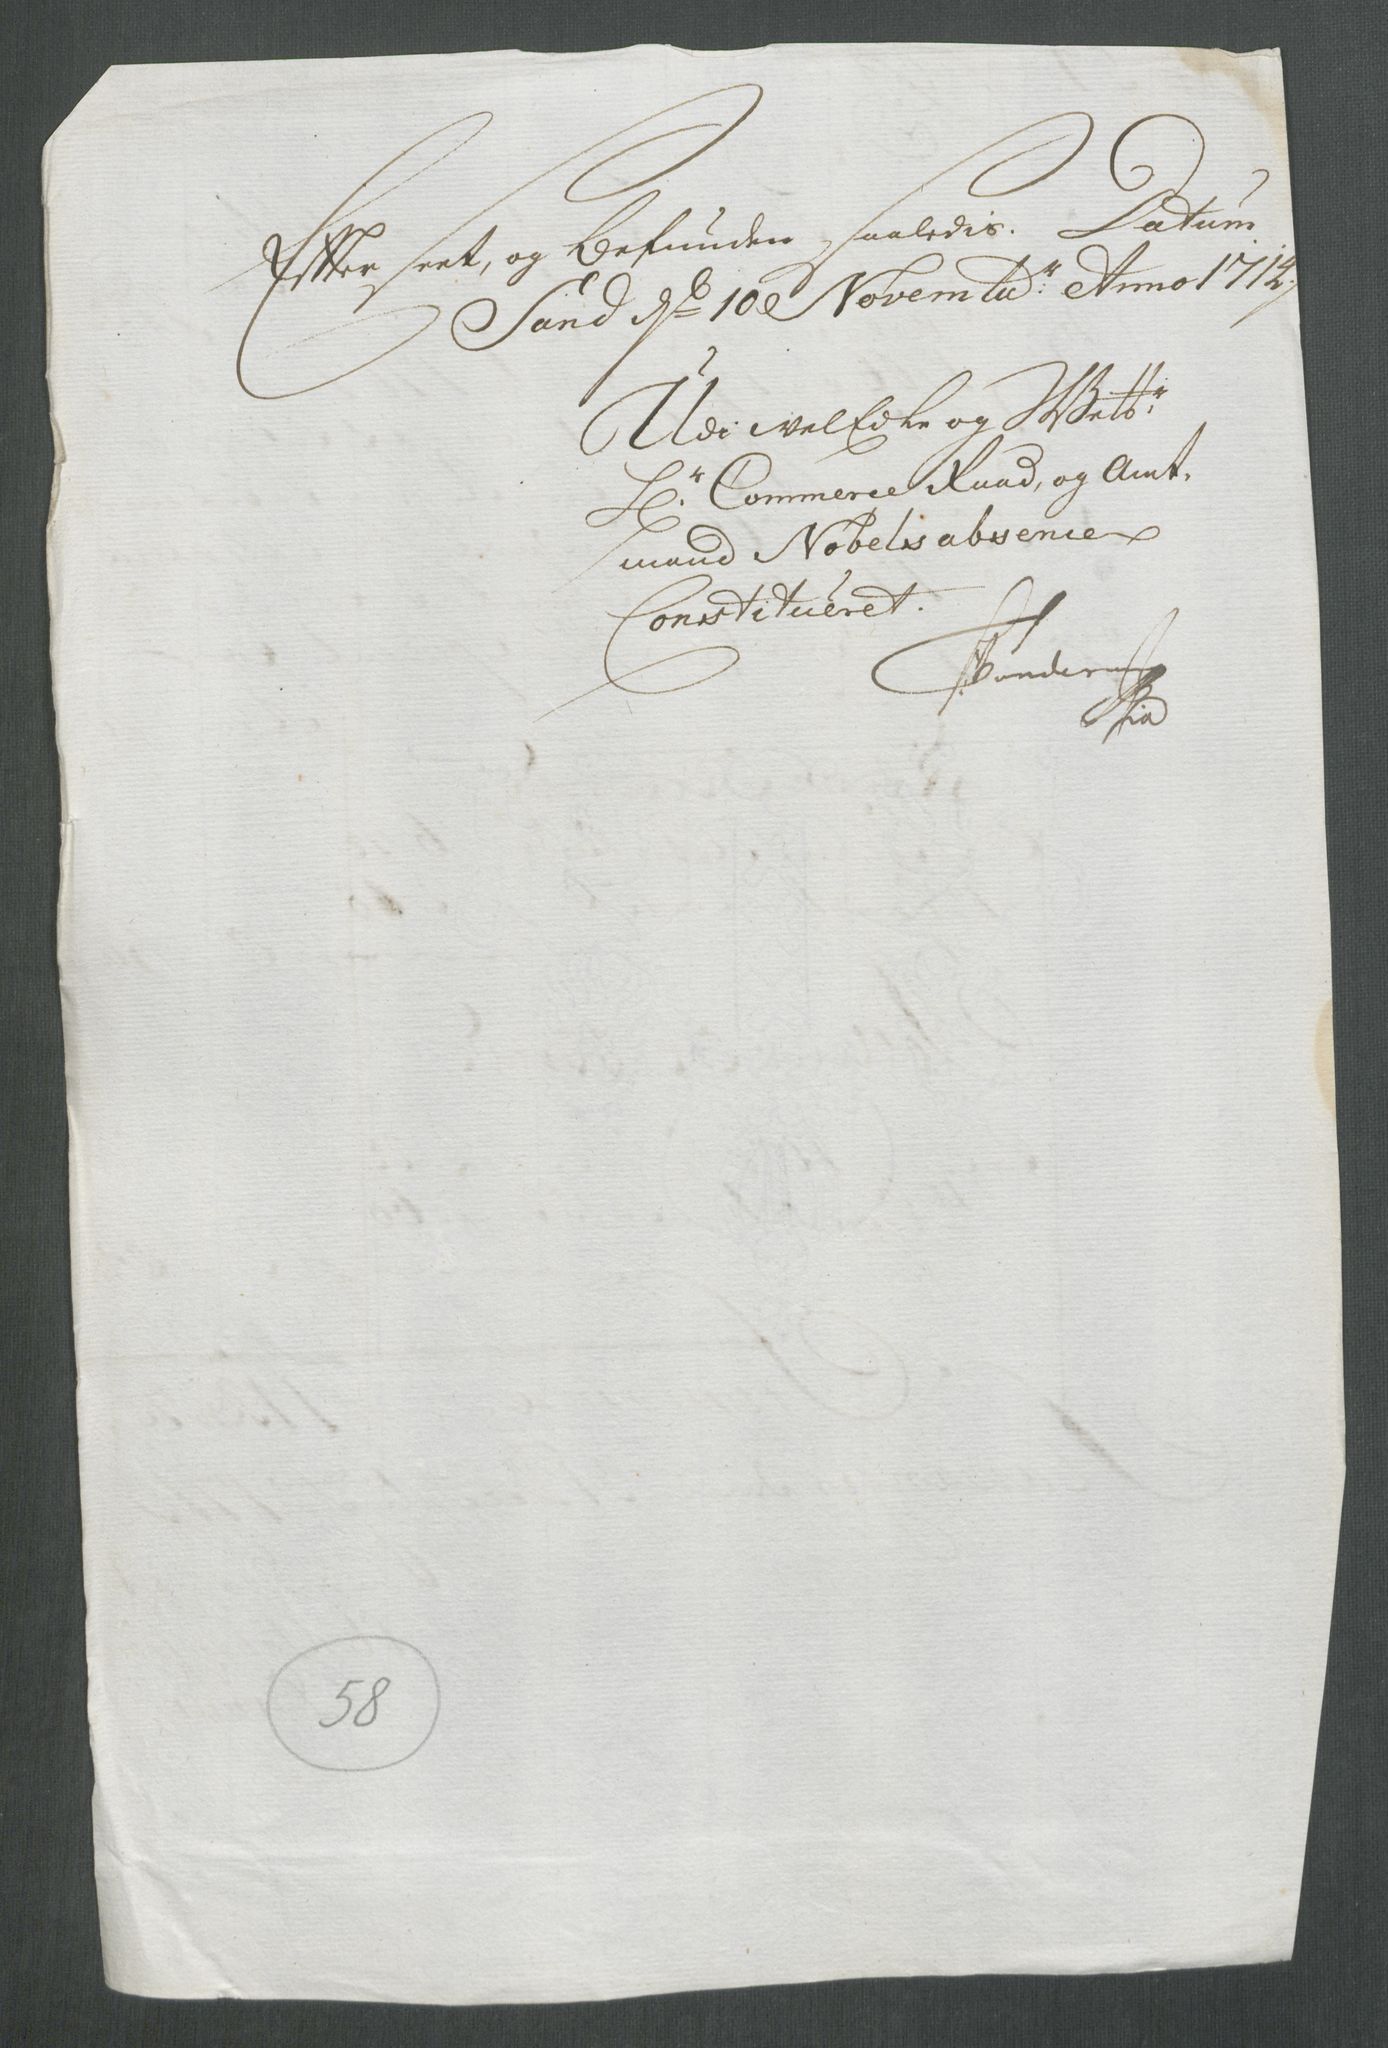 Efterseet, og befunden saaledis. Datum
Sand d: 10e Novembr: Anno 1714
Udi velEdle og Welb:r
Hr: Commerce Raad, og Amt-
mand Nobels absence
Constitueret.
58